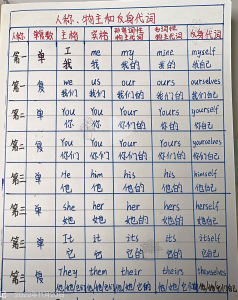 人称、物主和反身代词
人称 单复数 主格 宾格 形容词性物主代词 名词性物主代词 反身代词
第一 单 I me my mine myself
我 我 我的 我的 我自己
第一 复 we us our ours ourselves
我们 我们 我们的 我们的 我们自己
第二 单 You You your yours yourself
你 你 你的 你的 你自己
第二 复 You You your yours yourselves
你们 你们 你们的 你们的 你们自己
第三 单 He him his his himself
他 他 他的 他的 他自己
第三 单 she her her hers herself
她 她 她的 她的 她自己
第三 单 It it its its itself
它 它 它的 它的 它自己
第三 复 They them their theirs themselves